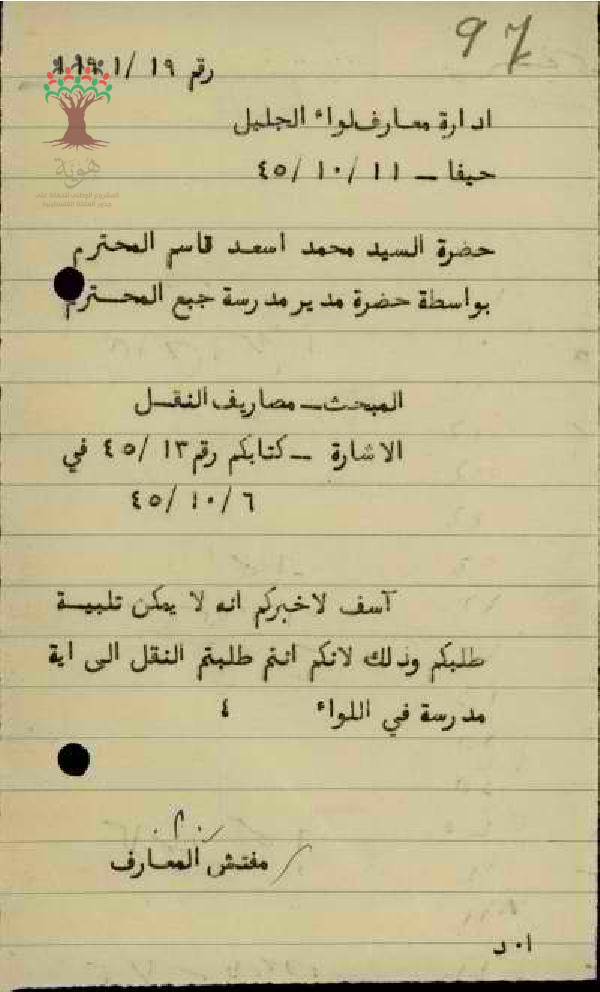 97
رقم ١٩ /١
ادارة معارف لواء الجليل
حيفا ــ ١١ /١٠ /٤٥
هوية
المشروع الوطني للحفاظ على
جذور العائلة الفلسطينية
حضرة السيد محمد اسعد قاسم المحترم
بواسطة حضرة مدير مدرسة جبع المحترم
المبحث ــ مصاريف النقل
الاشارة ــ كتابكم رقم ١٣ /٤٥ في
٦ /١٠ /٤٥
آسف لاخبركم انه لا يمكن تلبية
طلبكم وذلك لانكم انتم طلبتم النقل الى اية
مدرسة في اللواء ٤
مفتش المعارف
ا ٠ د